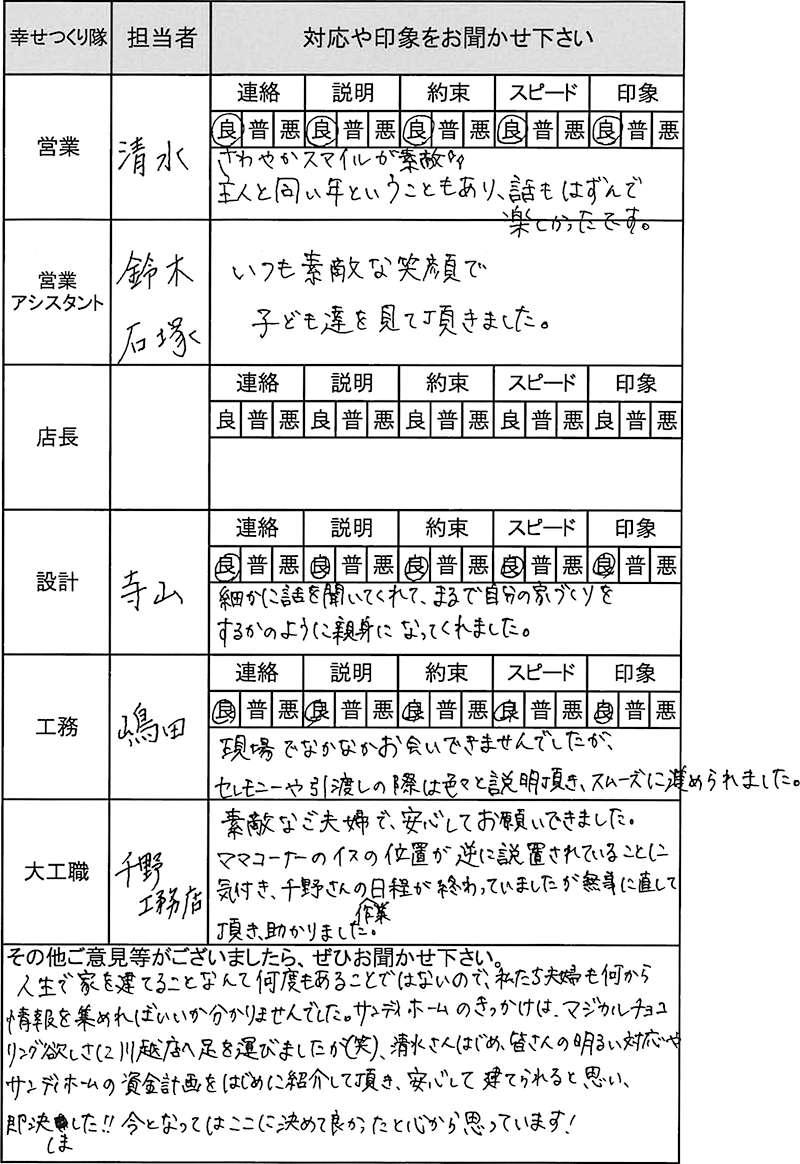 幸せつくり隊 担当者 対応や印象をお聞かせ下さい
連絡 説明 約束 スピード 印象
良 普 悪 良 普 悪 良 普 悪 良 普 悪 良 普 悪
営業 清水
さわやかスマイルが素敵!!
主人と同い年ということもあり、話もはずんで
楽しかったです。
営業
アシスタント
鈴木
石塚
いつも素敵な笑顔で
子ども達を見て頂きました。
連絡 説明 約束 スピード 印象
良 普 悪 良 普 悪 良 普 悪 良 普 悪 良 普 悪
店長
連絡 説明 約束 スピード 印象
良 普 悪 良 普 悪 良 普 悪 良 普 悪 良 普 悪
設計 寺山
細かに話を聞いてくれて、まるで自分の家づくりを
するかのように親身になってくれました。
連絡 説明 約束 スピード 印象
良 普 悪 良 普 悪 良 普 悪 良 普 悪 良 普 悪
工務 嶋田
現場でなかなかお会いできませんでしたが、
セレモニーや引渡しの際は色々と説明頂き、スムーズに進められました。
大工職 千野
工務店
素敵なご夫婦で、安心してお願いできました。
ママコーナーのイスの位置が逆に設置されていることに
気付き、千野さんの日程が終わっていましたが無事に直して
作業
頂き、助かりました。
その他ご意見等がございましたら、ぜひお聞かせ下さい。
人生で家を建てることなんて何度もあることではないので、私たち夫婦も何から
情報を集めればいいか分かりませんでした。サンディホームのきっかけは、マジカルチョコ
リング欲しさに川越店へ足を運びましたが(笑)、清水さんはじめ、皆さんの明るい対応や
サンディホームの資金計画をはじめに紹介して頂き、安心して建てられると思い、
即決しました!!今となってはここに決めて良かったと心から思っています!